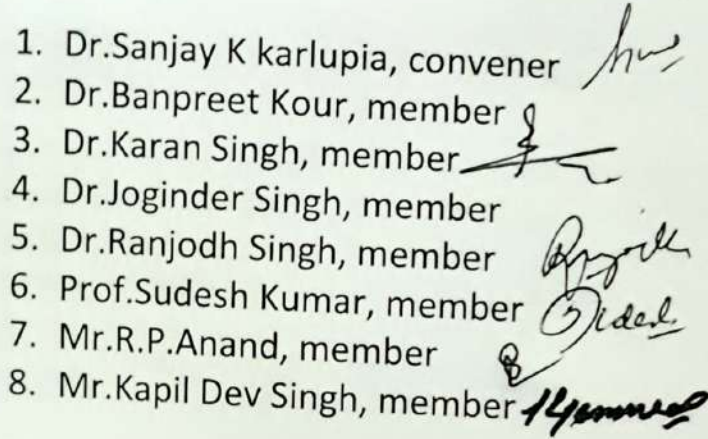 1. Dr.Sanjay K karlupia, convener
2. Dr.Banpreet Kour, member
3. Dr.Karan Singh, member
4. Dr.Joginder Singh, member
5. Dr.Ranjodh Singh, member
6. Prof.Sudesh Kumar, member
7. Mr.R.P.Anand, member
8. Mr.Kapil Dev Singh, member